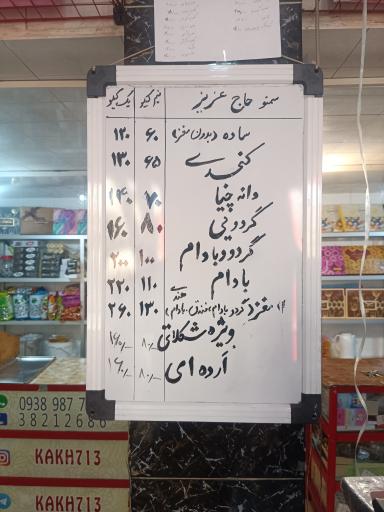 سمنو حاج عزیز نیم کیلو یک کیلو
ساده (بدون مغز) ۶۰ ۱۲۰
کنجدی ۶۵ ۱۳۰
دانه چیا ۷۰ ۱۴۰
گردویی ۸۰ ۱۶۰
گردو و بادام ۱۰۰ ۲۰۰
بادام هندی ۱۱۰ ۲۲۰
۳مغز (گردو، بادام، فندق، بادام) ۱۳۰ ۲۶۰
ویژه شکلاتی ۸۰/- ۱۶۰/-
اَرده ای ۸۰/- ۱۶۰/-
0938 987 7
38212686
KAKH713
KAKH713